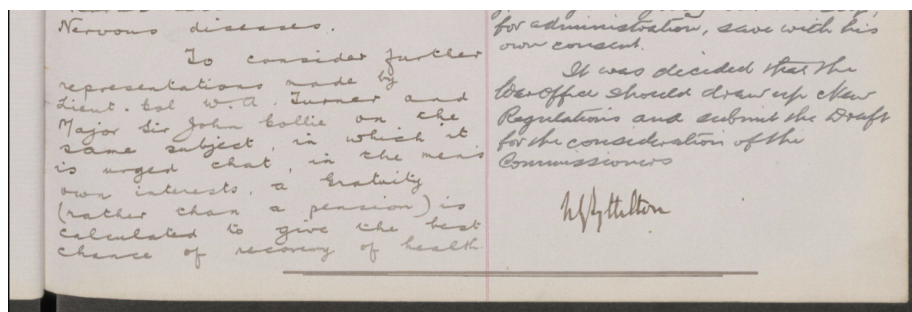 Nervous diseases.
To consider further
representations made by
Lieut. Col W. A. Turner and
Major Sir John Collie on the
same subject, in which it
is urged that, in the men's
own interests, a Gratuity
(rather than a pension) is
calculated to give the best
chance of recovery of health
for administration, save with his
own consent.
It was decided that the
War Office should draw up New
Regulations and submit the Draft
for the consideration of the
Commissioners